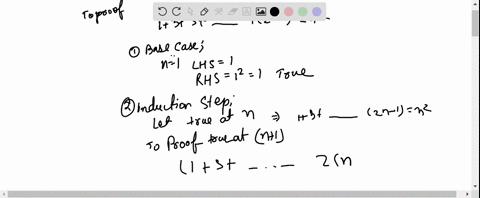 To proof
① Base Case;
n=1 LHS = 1
RHS = 1² = 1 True
② Induction Step;
Let true at n ⇒ 1+3+ ___ (2n-1) = n²
To Proof true at (n+1)
(1+3+ ------ 2(n